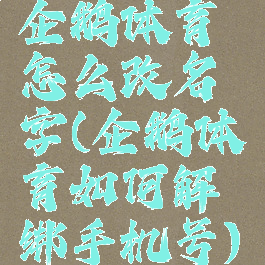 企鹅体育
怎么改名
字(企鹅体
育如何解
绑手机号)